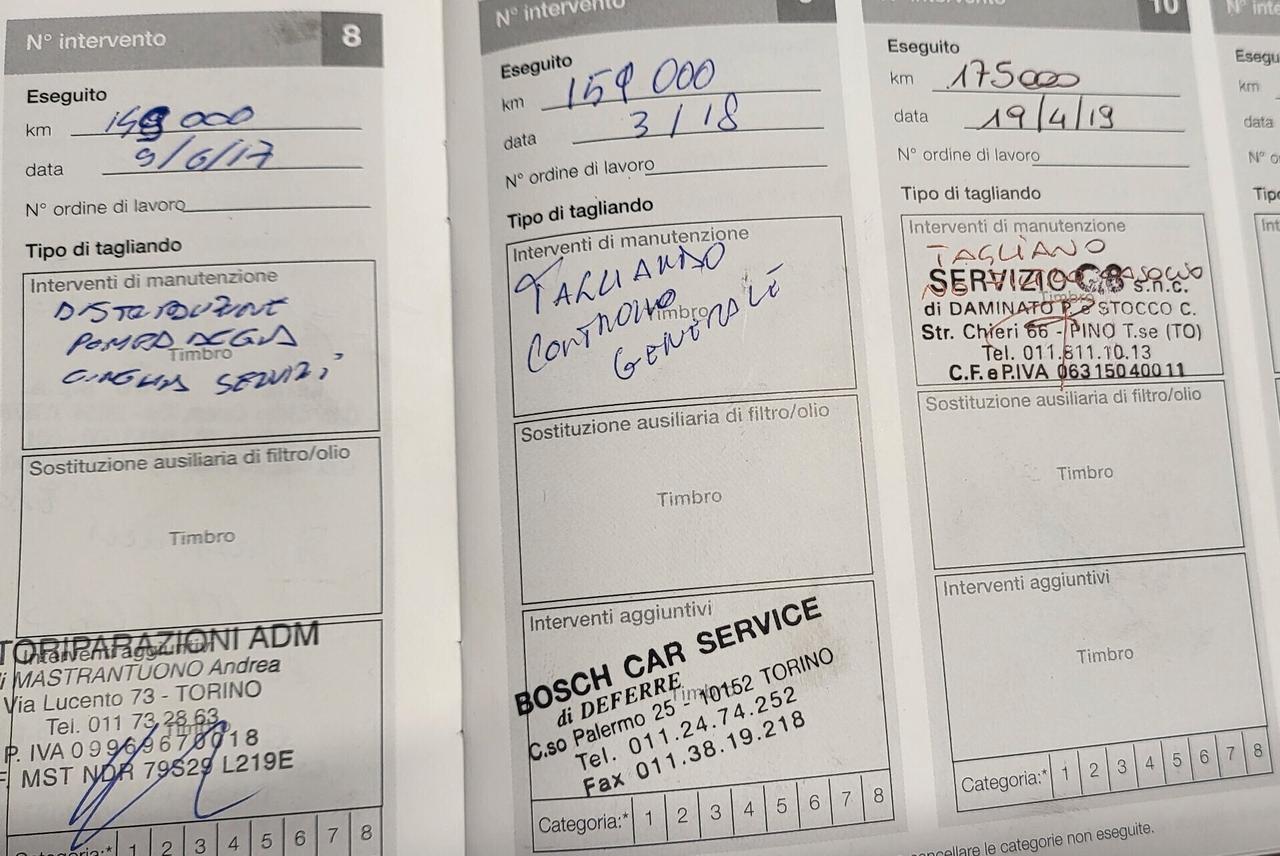 N° intervento 8
Eseguito
km
data 9/6/17
N° ordine di lavoro
Tipo di tagliando
Interventi di manutenzione
DISTRIBUZIONE
POMPA ACQUA
Timbro
CINGHIA SERVIZI
Sostituzione ausiliaria di filtro/olio
Timbro
TORIPARAZIONI ADM
Interventi aggiuntivi
di MASTRANTUONO Andrea
Via Lucento 73 - TORINO
Tel. 011 73.28.63
Timbro
P. IVA 09969670018
MST NDR 79S29 L219E
Categoria:* 1 2 3 4 5 6 7 8
N° intervento
Eseguito
km 159 000
data 3/18
N° ordine di lavoro
Tipo di tagliando
Interventi di manutenzione
TAGLIANDO
CONTROLLO
Timbro
GENERALE
Sostituzione ausiliaria di filtro/olio
Timbro
Interventi aggiuntivi
BOSCH CAR SERVICE
di DEFERRE
Timbro
C.so Palermo 25 - 10152 TORINO
Tel. 011.24.74.252
Fax 011.38.19.218
Categoria:* 1 2 3 4 5 6 7 8
N° intervento 10
Eseguito
km 175000
data 19/4/19
N° ordine di lavoro
Tipo di tagliando
Interventi di manutenzione
TAGLIANO
SERVIZIO s.n.c.
Timbro
di DAMINATO P. e STOCCO C.
Str. Chieri 66 - PINO T.se (TO)
Tel. 011.811.10.13
C.F. e P.IVA 06315040011
Sostituzione ausiliaria di filtro/olio
Timbro
Interventi aggiuntivi
Timbro
Categoria:* 1 2 3 4 5 6 7 8
cancellare le categorie non eseguite.
N° inte
Esegu
km
data
N° o
Tipo
Int